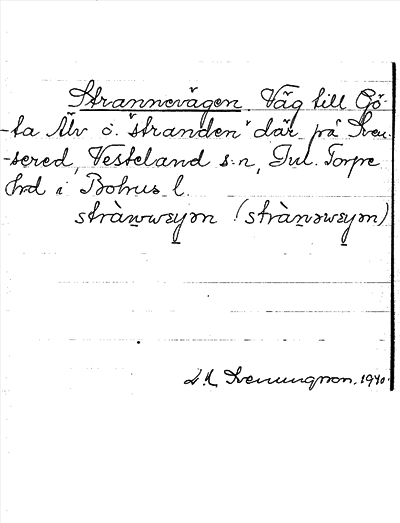 Strannevägen. Väg till Gö-
-ta Älv o. "stranden" där på Sven-
-sered, Vesteland s:n, Inl. Torpe
hrd i Bohus l.
stràn̲wwɛy̲ən (stràn̲əwɛy̲ən)
Svenungsson. 1940.